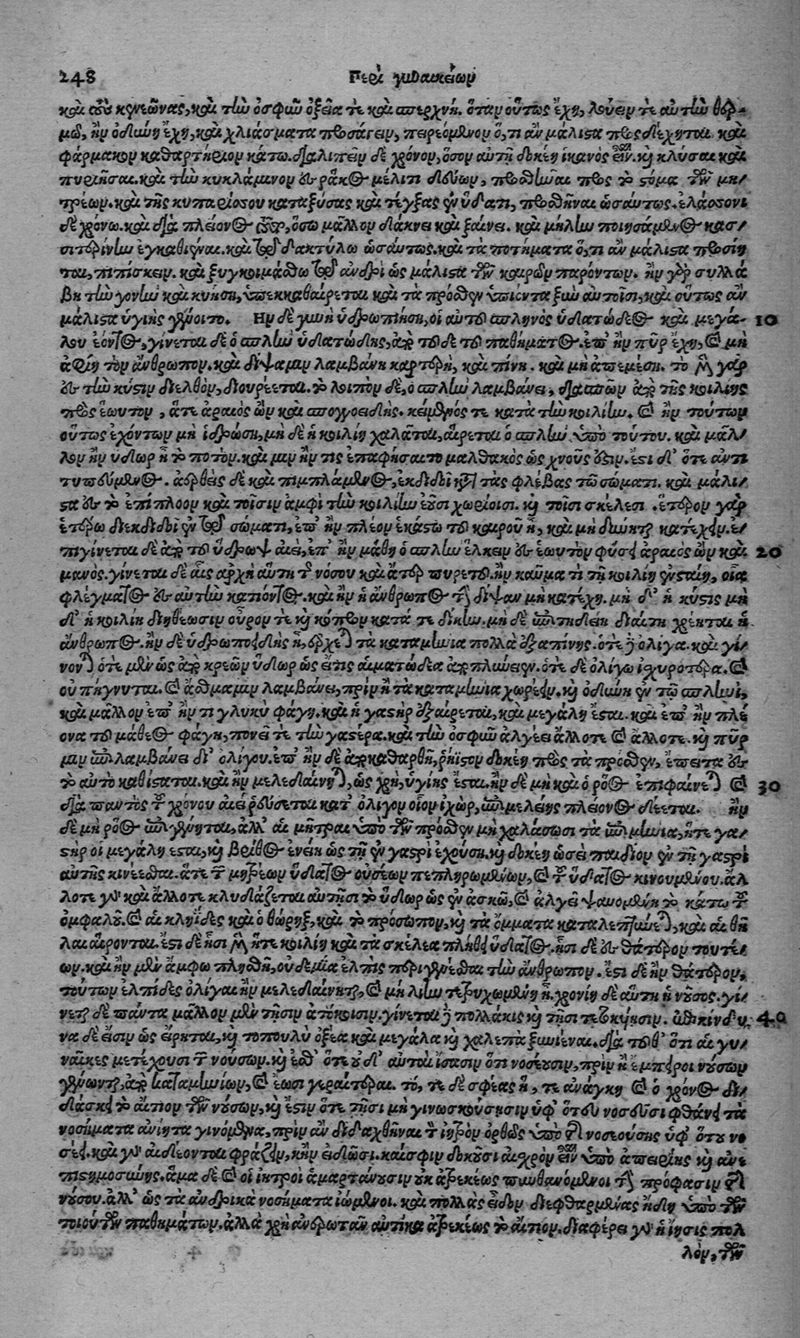 248 Περὶ γυναικείων
καὶ τοὺς κενεῶνας, καὶ τὴν ὀσφὺν ὀξεῖα τε καὶ σπερχνή. ὅταν οὕτως ἔχῃ, λούειν τε αὐτὴν θερ-
μῷ, ἢν ὀδύνη ἔχῃ, καὶ χλιάσματα προσάγειν, πειρεόμενον ὅ, τι ἂν μάλιστα προσδέχηται. καὶ
φάρμακον καθαρτήριον κάτω. διαλιπεῖν δὲ χρόνον, ὅσον αὐτῇ δοκέῃ ἱκανὸς εἶναι. κỳ κλύσαι καὶ
πυριῆσαι. καὶ τὴν κυκλάμινον ἐν ῥάκει μέλιτι δεύων, προσθεῖναι πρὸς τὸ στόμα τῶν μη-
τρέων. καὶ τῆς κυπαρίσσου καταξύσας καὶ τέγξας ἐν ὕδατι, προσθεῖναι ὡσαύτως. ἐλάσσονι
δὲ χρόνῳ. καὶ διὰ πλείονος ὅσῳ μᾶλλον δάκνει καὶ ξαίνει. καὶ μήλην ποιησάμενος κασ-
σιτερίνην ἐγκαθιέναι. καὶ τῷ δακτύλῳ ὡσαύτως. καὶ τὰ ποτήματα ὅ, τι ἂν μάλιστα προσίη-
ται, πιπίσκειν. καὶ ξυγκοιμάσθω τῷ ἀνδρὶ ὡς μάλιστα τῶν καιρῶν παρόντων. ἢν γὰρ συλλά
βῃ τὴν γονὴν καὶ κυήσῃ, ὑπεκκαθαίρεται καὶ τὰ πρόσθεν ὑπιόντα ξὺν αὐτοῖσι, καὶ οὕτως ἂν
μάλιστα ὑγιὴς γένοιτο. Ην δὲ γυνὴ ὑδρωπιήσῃ, οἱ αὐτοῦ σπληνὸς ὑδατώδεος καὶ μεγά- 10
λου ἐόντος, γίνεται δὲ ὁ σπλὴν ὑδατώδης, ἀπὸ τοῦδε τοῦ παθήματος. ἐπ' ἢν πῦρ ἔχῃ, καὶ μὴ
ἀφίῃ τὸν ἄνθρωπον. καὶ δίψα μιν λαμβάνῃ καρτερὴ, καὶ πίνῃ. καὶ μὴ ἀπεμέσῃ. τὸ μὲν γὰρ
ἐς τὴν κύστιν διελθὸν, διουρέεται. τὸ λοιπὸν δὲ, ὁ σπλὴν λαμβάνει, διασπῶν ἀπὸ τῆς κοιλίης
πρὸς ἑωυτὸν, ἅτε ἀραιὸς ὢν καὶ σπογγοειδὴς. κείμενός τε κατὰ τὴν κοιλίην. καὶ ἢν τούτων
οὕτως ἐχόντων μὴ ἱδρώσῃ, μὴ δὲ ἡ κοιλίη χαλᾶται, αἴρεται ὁ σπλὴν ὑπὸ τούτου. καὶ μᾶλ-
λον ἢν ὕδωρ ᾖ τὸ ποτόν. καὶ μιν ἤν τις ἐπαφήσαιτο μαλθακὸς ὡς χνοῦς ἐστιν. ἔστι δ' ὅτε ἀντι
τυπεύμενος. ἀρθεὶς δὲ καὶ πιμπλάμενος, ἐκδιδοῖ κατὰ τὰς φλέβας τῷ σώματι. καὶ μάλι-
στα ἐς τὸ ἐπίπλοον καὶ τοῖσιν ἀμφὶ τὴν κοιλίην ἐοῦσι χωρίοισι. κỳ τοῖσι σκέλεσι. ἕτερον γὰρ
ἑτέρῳ διεκδιδοῖ ἐν τῷ σώματι, ἐπ' ἢν πλέον ἑκάστῳ τοῦ καιροῦ ᾖ, καὶ μὴ δύνηται κατέχειν. ἐ-
πιγίνεται δὲ ἀπὸ τοῦ ὕδρωψ αἰεὶ, ἐπ' ἢν μάθῃ ὁ σπλὴν ἕλκειν ἐς ἑωυτὸν φύσει ἀραιὸς ὢν καὶ 20
μανός. γίνεται δὲ αἰεὶ ἀρχὴ αὕτη τῆς νόσου καὶ ἄτερ πυρετοῦ. ἢν καῦμα τι τῇ κοιλίῃ ἐνστάῃ, οἷα
φλέγματος ἐς αὐτὴν κατιόντος. καὶ ἢν ἡ ἄνθρωπος τὴν δίψαν μὴ κατέχῃ. μὴ δ' ἡ κύστις μὴ
δ' ἡ κοιλίη διηθέωσιν οὖρον τε κỳ κόπρον κατὰ τε δίκην. μὴ δὲ ἐπιτηδείη διαίτῃ χρέηται ἡ
ἄνθρωπος. ἢν δὲ ὑδρωποειδὴς ᾖ, ἔρχεται τὰ καταμήνια πολλὰ ἐξαπίνης. ὁτὲ δὲ ὀλίγα. καὶ γί-
νονται ὁτὲ μὲν ὡς ἀπὸ κρεῶν ὕδωρ ὡς εἴ τις αἱματώδεα ἀποπλύνειεν. ὁτὲ δὲ ὀλίγῳ ἰσχυρότερα. καὶ
οὐ πήγνυται. καὶ ἆσθμα μιν λαμβάνει, πρὶν ἢ τὰ καταμήνια χωρέειν. κỳ ὀδύνη ἐν τῷ σπληνὶ,
καὶ μᾶλλον ἐπ' ἤν τι γλυκὺ φάγῃ. καὶ ἡ γαστὴρ ἐξαίρεται, καὶ μεγάλη ἐστὶ. καὶ ἐπ' ἢν πλέ-
ονα τοῦ μάθεος φάγῃ, πονέει τε τὴν γαστέρα. καὶ τὴν ὀσφὺν ἀλγέει ἄλλοτε καὶ ἄλλοτε. κỳ πῦρ
μιν ἐπιλαμβάνει δι' ὀλίγου. ἐπ' ἢν δὲ ἀποκαθαρθῇ, ῥηίστον δοκέῃ πρὸς τὰ πρόσθεν, ἔπειτα ἐς
τὸ αὐτὸ καθίσταται. καὶ ἢν μελεδαίνηται, ὡς χρὴ, ὑγιὴς ἔσται. ἢν δὲ μὴ καὶ ὁ ῥόος ἐπιφαίνεται καὶ 30
διὰ παντὸς τοῦ χρόνου αἰεὶ ῥεύσεται κατ' ὀλίγον οἷον ἰχώρ, ἐπιμελείης πλείονος δέεται. ἢν
δὲ μὴ ῥόος ἐπιγένηται, ἀλλ' αἱ μῆτραι ὑπὸ τῶν πρόσθεν μὴ χαλάσωσι τὰ ἐπιμήνια, ἥ τε γα-
στήρ οἱ μεγάλη ἐστὶ, κỳ βρίθος ἐνείη ὡς τῇ ἐν γαστρὶ ἐχούσῃ. κỳ δοκέῃ ὡσεὶ παιδίον ἐν τῇ γαστρὶ
αὐτῆς κινέεσθαι. ἅτε τῶν μητρέων ὕδατος οὐσέων πεπληρωμένων, καὶ τοῦ ὕδατος κινουμένου. ἄλ
λοτε γὰρ καὶ ἄλλοτε κλυδάζεται αὐτῇσι τὸ ὕδωρ ὡς ἐν ἀσκῷ, καὶ ἀλγέει ψαυομένη τὸ κάτω τοῦ
ὀμφαλοῦ. καὶ αἱ κληῖδες καὶ ὁ θώρηξ, καὶ τὸ πρόσωπον, κỳ τὰ ὄμματα καταλεπτύνεται, καὶ αἱ θη
λαὶ αἴρονται. ἔστι δὲ ᾗσι μὲν ἥ τε κοιλίη καὶ τὰ σκέλεα πλήθει ὕδατος. ᾗσι δὲ ἐς θάτερον τουτέ-
ων. καὶ ἢν μὲν ἄμφω πλησθῇ, οὐδεμία ἐλπὶς περιγενέσθαι τὴν ἄνθρωπον. ἔστι δὲ ἢν θάτερον,
τούτων ἐλπίδες ὀλίγαι ἢν μελεδαίνηται, καὶ μὴ λίην τετρυχωμένη ᾖ. χρονίη δὲ αὕτη ἡ νοῦσος. γί-
νεται δὲ πάντα μᾶλλον μὲν τῇσιν ἀτόκοισιν. γίνεται δὲ πολλάκις κỳ τῇσι τετοκηῖσιν. ἐπικίνδυ- 40
να δὲ ἐστιν ὡς εἴρηται, κỳ τὸ πουλὺ ὀξέα καὶ μεγάλα κỳ χαλεπὰ ξυνίεναι. διὰ τοῦθ' ὅτι αἱ γυ-
ναῖκες μετέχουσι τῶν νούσων. κỳ ἔσθ' ὅτε οὐδ' αὐταὶ ἴσασιν ὅτι νοσεῦσιν, πρὶν ἢ ἔμπειροι νούσων
γένωνται, ἀπὸ καταμηνίων, καὶ ἔωσι γεραίτεραι. τό, τε δὲ σφέας ἥ, τε ἀνάγκη καὶ ὁ χρόνος δι-
δάσκει τὸ αἴτιον τῶν νούσων, κỳ ἔστιν ὅτε τῇσι μὴ γινωσκούσῃσιν ὑφ' ὅτευ νοσεῦσι φθάνει τὰ
νοσήματα ἀνίητα γινόμενα, πρὶν ἂν διδαχθῆναι τὸν ἰητρὸν ὀρθῶς ὑπὸ τῆς νοσεούσης ὑφ' ὅτου νο
σέει. καὶ γὰρ αἰδέονται φράζειν, κἢν εἰδῶσι. καί σφιν δοκεῦσι αἰσχρὸν εἶναι ὑπὸ ἀπειρίης κỳ ἀνε
πιστημοσύνης. ἅμα δὲ καὶ οἱ ἰητροὶ ἁμαρτάνουσιν οὐκ ἀτρεκέως πυνθανόμενοι τὴν πρόφασιν τῆς
νούσου. ἀλλ' ὡς τὰ ἀνδρικὰ νοσήματα ἰώμενοι. καὶ πολλὰς εἶδον διεφθαρμένας ἤδη ὑπὸ τῶν
τοιούτων παθημάτων. ἀλλὰ χρὴ ἀνερωτᾶν αὐτίκα ἀτρεκέως τὸ αἴτιον. διαφέρει γὰρ ἡ ἴησις πολ
λὸν, τῶν